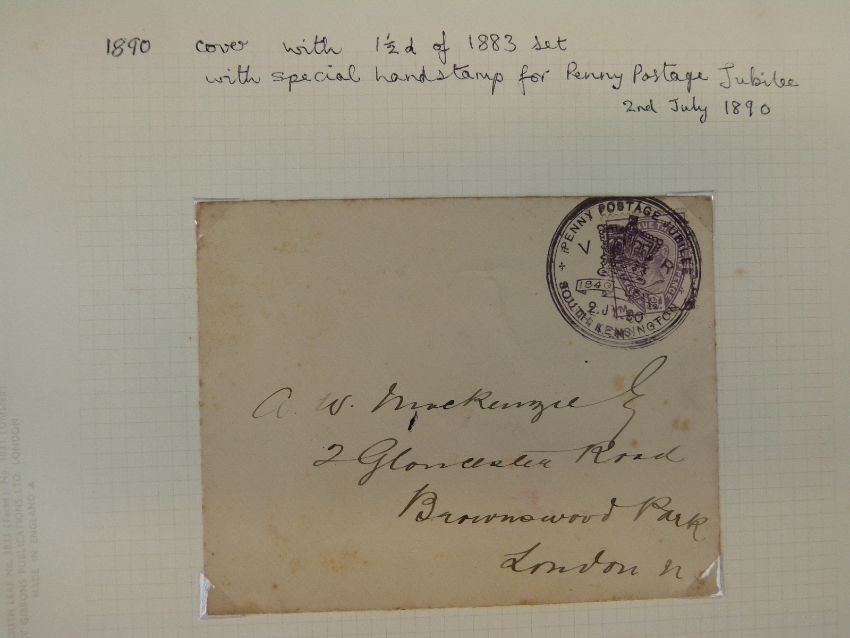 1890 cover with 1½d of 1883 set
with special handstamp for Penny Postage Jubilee
2nd July 1890
PENNY POSTAGE JUBILEE
V R
1840
2 JY
SOUTH KENSINGTON
A. W. Mackenzie Esq
2 Gloucester Road
Brownswood Park
London N
GIBBONS PUBLICATIONS LTD LONDON
MADE IN ENGLAND